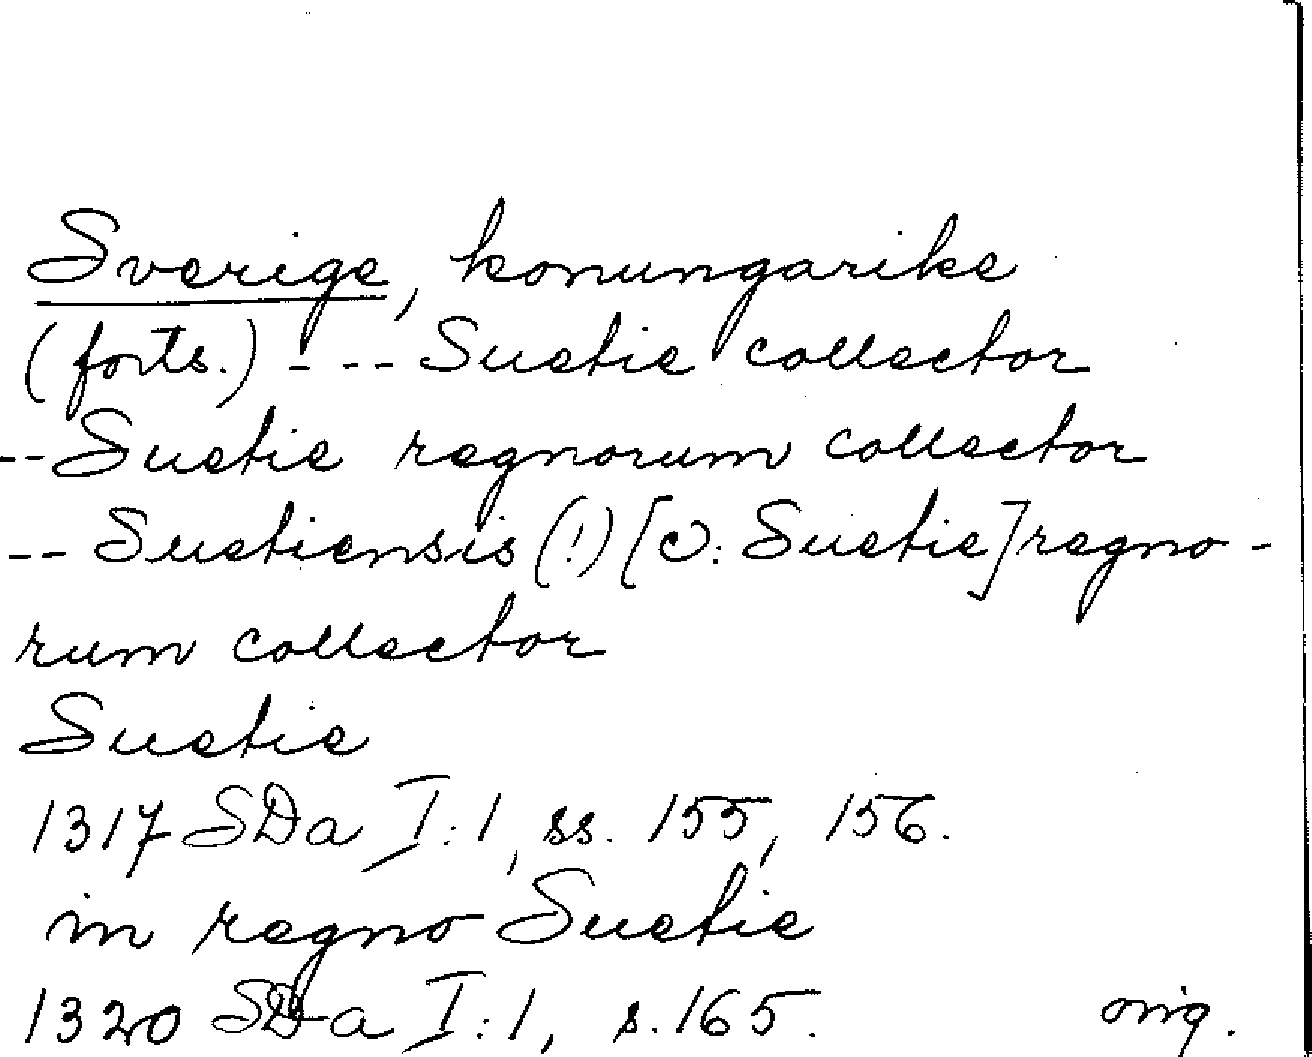 Sverige, konungarike
(forts.) - - - Suetie collector
-- Suetie regnorum collector
-- Suetiensis (!) [ɔ: Suetie] regno-
rum collector
Suetie
1317 SDa I:1, ss. 155, 156.
in regno Suetie
1320 SDa I:1, s. 165. orig.